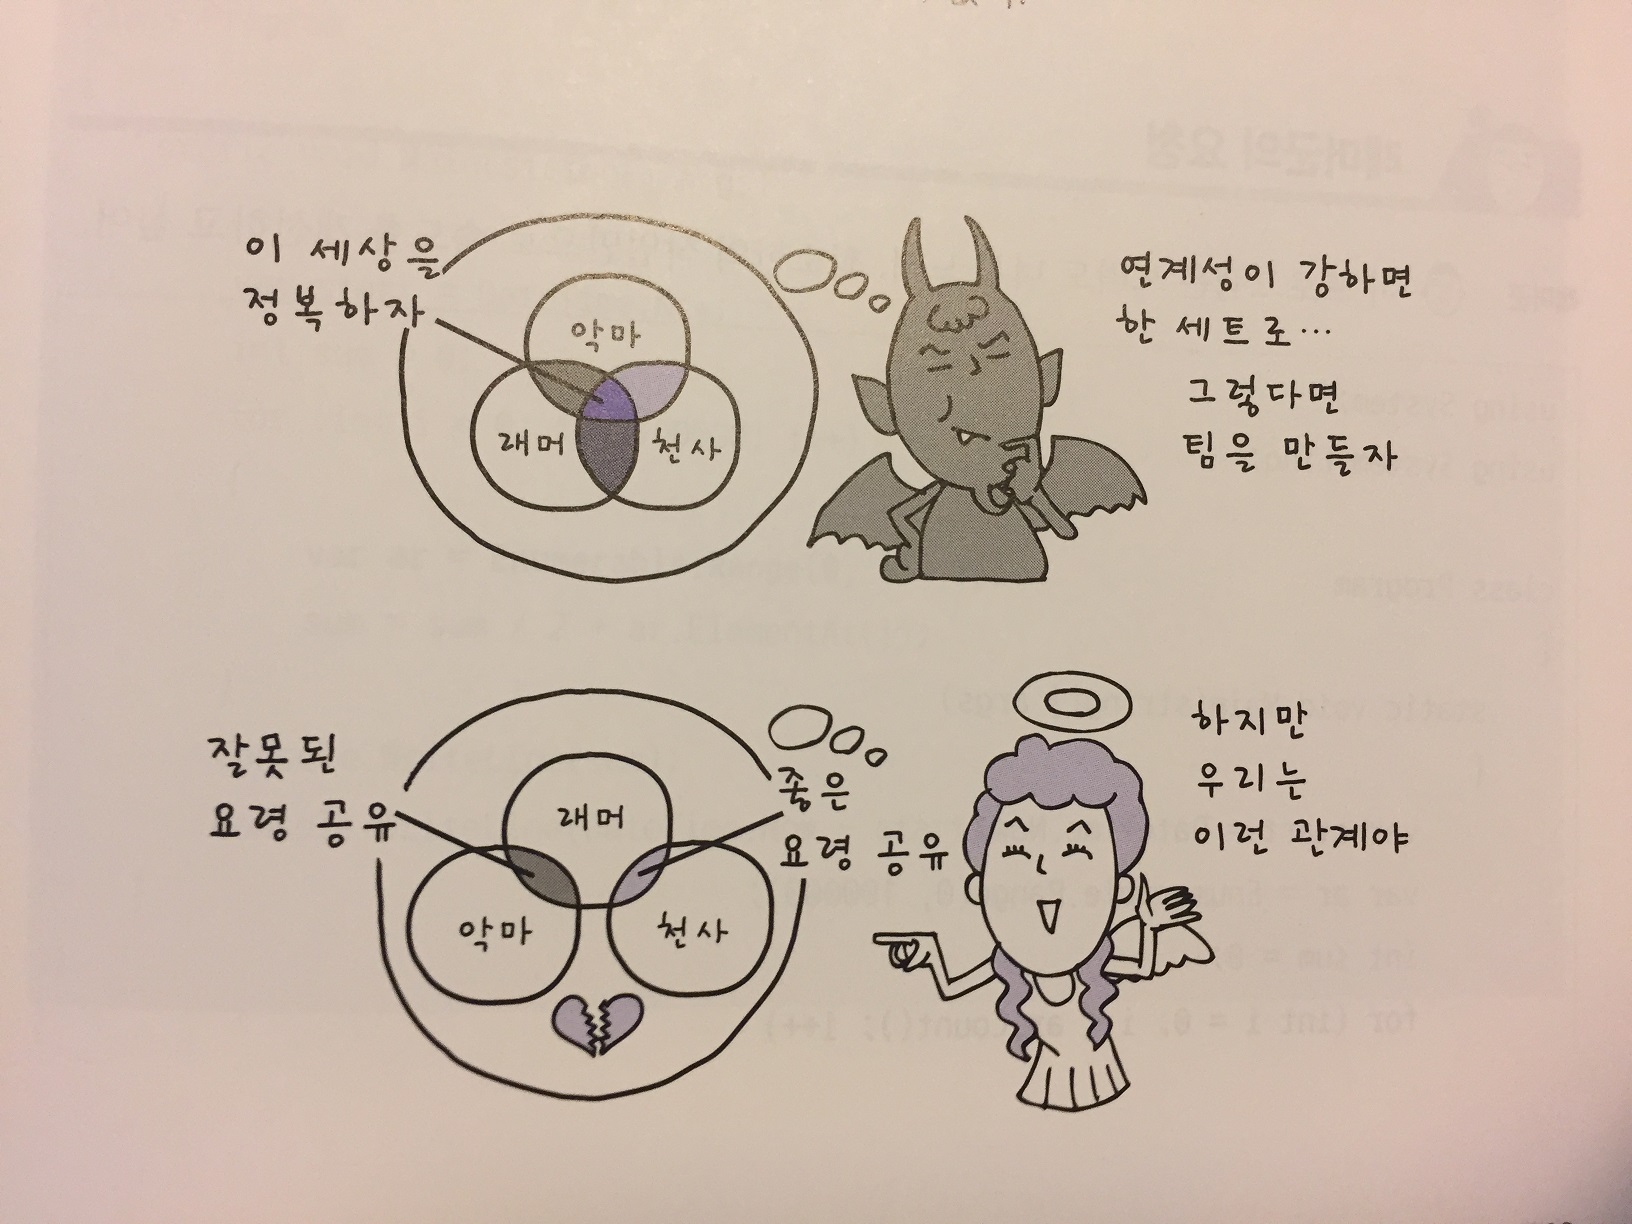 이 세상을
정복하자
악마
래머
천사
연계성이 강하면
한 세트로…
그렇다면
팀을 만들자
잘못된
요령 공유
래머
악마
천사
좋은
요령 공유
하지만
우리는
이런 관계야